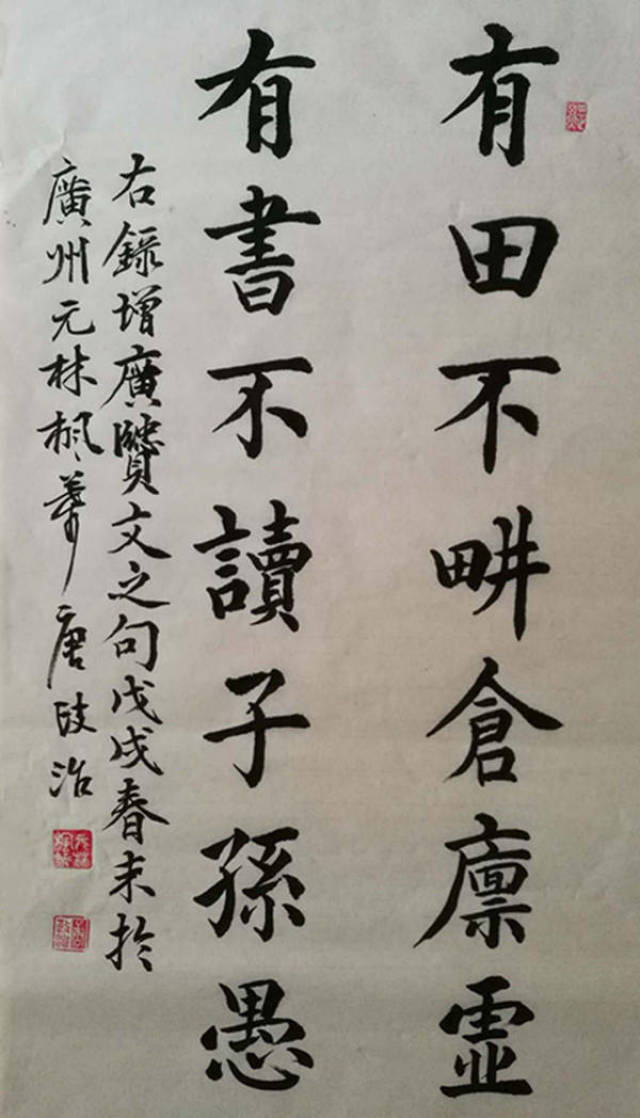 有田不畊倉廩虛
有書不讀子孫愚
右錄增廣賢文之句戊戌春末於
廣州元林楓唐治